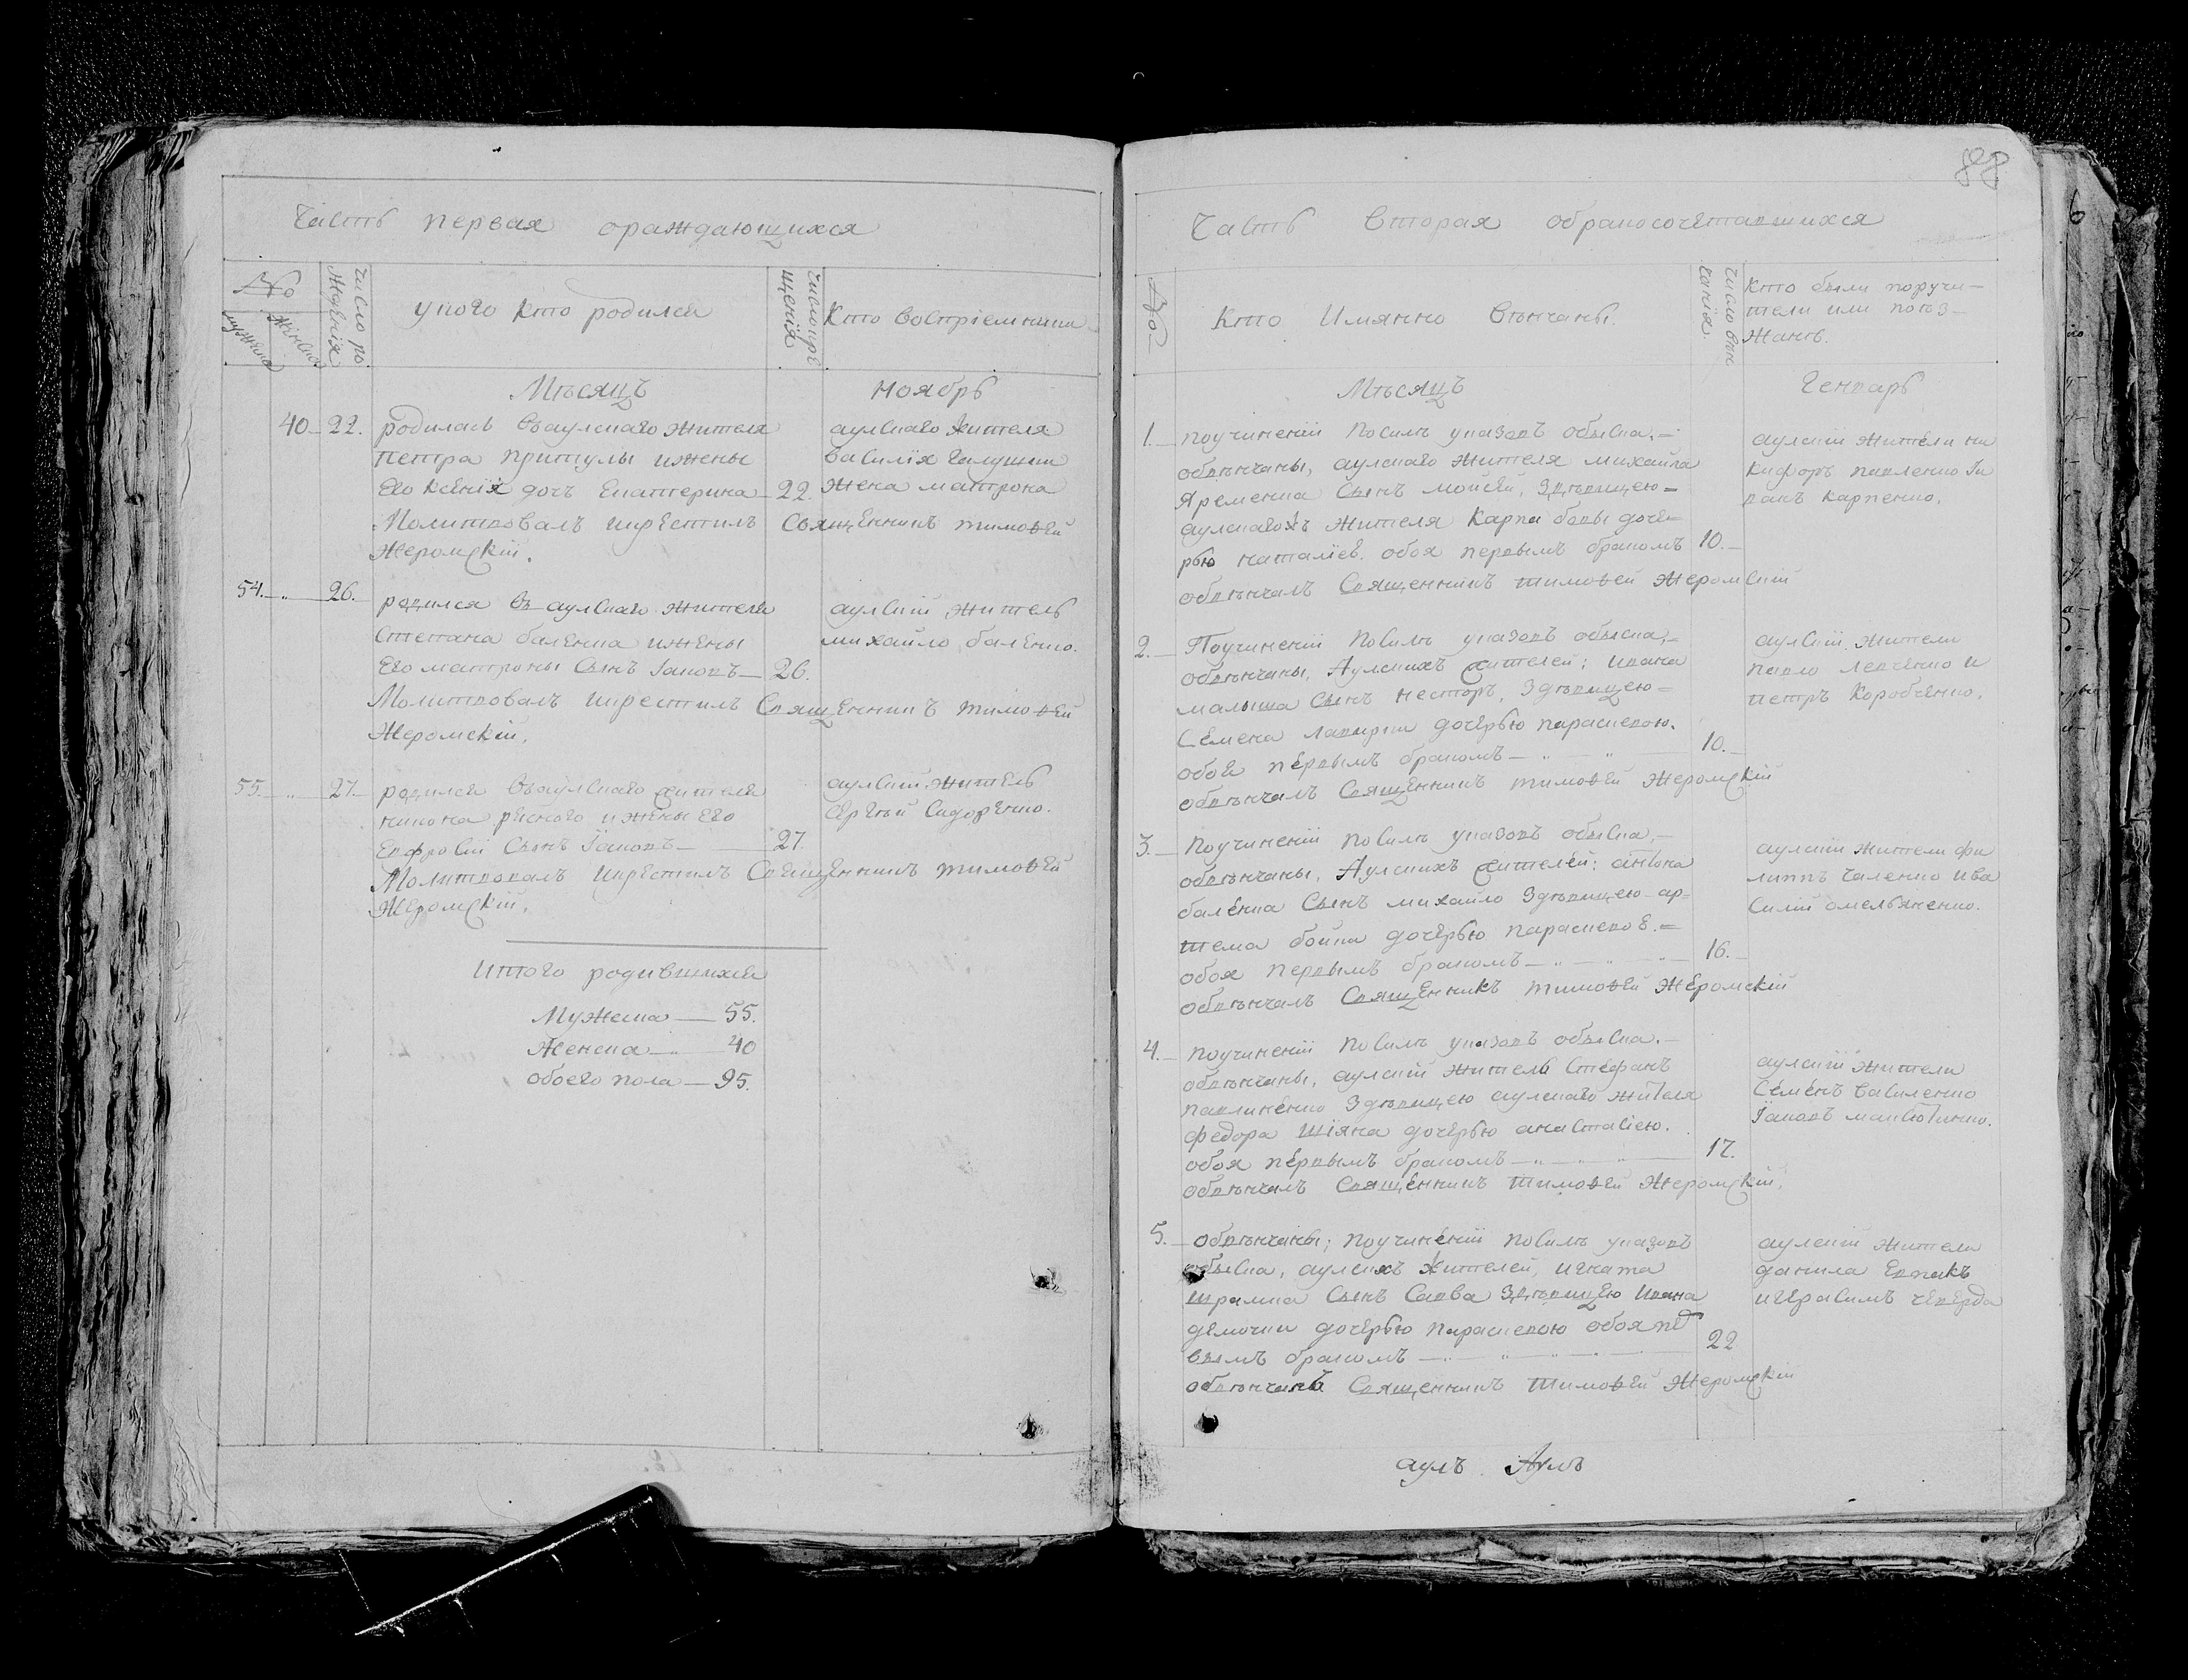 Часть первая ораждающихся
№
мужеска
женска
Число ро
жденія
укого кто родился
Число кре
щенія
Кто воспріемники
Мѣсяцъ Ноябрь
40 22. родилась въаулскаго жителя
петра притулы ижены
его ксенія дочь Екатерина 22.
Молитвовалъ икрестилъ Священникъ тимоѳей
Жеромскій.
аулскаго жителя
василія галушки
жена матрона
54. „ 26. родился въ аулскаго жителя
степана баленка ижены
Его матроны Сынъ Іаковъ 26.
Молитвовалъ икрестилъ Священникъ тимоѳей
Жеромскій.
аулскій житель
михайло баленко.
55. „ 27. родился въаулскаго жителя
никона рясного ижены Его
Евфросіи Сынъ Іаковъ 27.
Молитвовалъ икрестилъ Священникъ тимоѳей
Жеромскій.
аулскій житель
Сергѣй Сидоренко.
Итого родившихся
Мужеска 55.
Женска 40
обоего пола 95.
88
Часть вторая обракосочетавшихся
№
Кто Имянно Вѣнчаны.
Число вѣн
чанія.
Кто были поручи-
тели или поѣз-
жанъ.
Мѣсяцъ Генварь
1. поучиненіи посилъ указовъ обыска.=
обвѣнчаны, аулскаго жителя михайла
Яременка Сынъ мойсей, Здѣвицею=
аулскагохъ жителя Карпа бабы доче=
рью наталіев. обоя первымъ бракомъ 10.
обвѣнчалъ Священникъ тимоѳей Жеромскій
аулскіи жители ни
кифоръ павленко Ги
рачъ Карпенко.
2. Поучиненіи посилъ указовъ обыска,=
обвѣнчаны, Аулскихъ жителей: ивана
малыша Сынъ несторъ, Здѣвицею=
Семена лавирки дочерью параскевою.
обоя первымъ бракомъ „ „ 10.
обвѣнчалъ Священникъ тимоѳей Жеромскій
аулскіи жители
павло левченко и
петръ Коробченко.
3. Поучиненіи посилъ указовъ обыска,
обвѣнчаны, Аулскихъ жителей: антона
баленка Сынъ михайло Здѣвицею ар=
тема бойки дочерью параскевов.=
обоя первымъ бракомъ „ „ „ 16.
обвѣнчалъ Священникъ тимоѳей Жеромскій
аулскіи жители фи
липпъ Галенко ива
Силій омельяненко.
4. поучиненіи посилъ указовъ обыска.
обвѣнчаны, аулскій житель Стефанъ
павлиненко Здѣвицею аулскаго жителя
федора Шіяна дочерью анастасіею.
обоя первымъ бракомъ „ „ „ 17.
обвѣнчалъ Священникъ тимоѳей Жеромскій.
аулскіи жители
Семенъ василенко
Іаковъ
5. обвѣнчаны; поучиненіи посилъ указовъ
обыска, аулскихъ жителей, игната
шрамка Сынъ Савва Здѣвицею Ивана
демочки дочерью параскевою обоя пер
вымъ бракомъ „ „ „ 22
обвѣнчанъ Священникъ тимоѳей Жеромскій
аулскіи жители
данила Ермакъ
игерасимъ чеверда
аулъ Аулъ